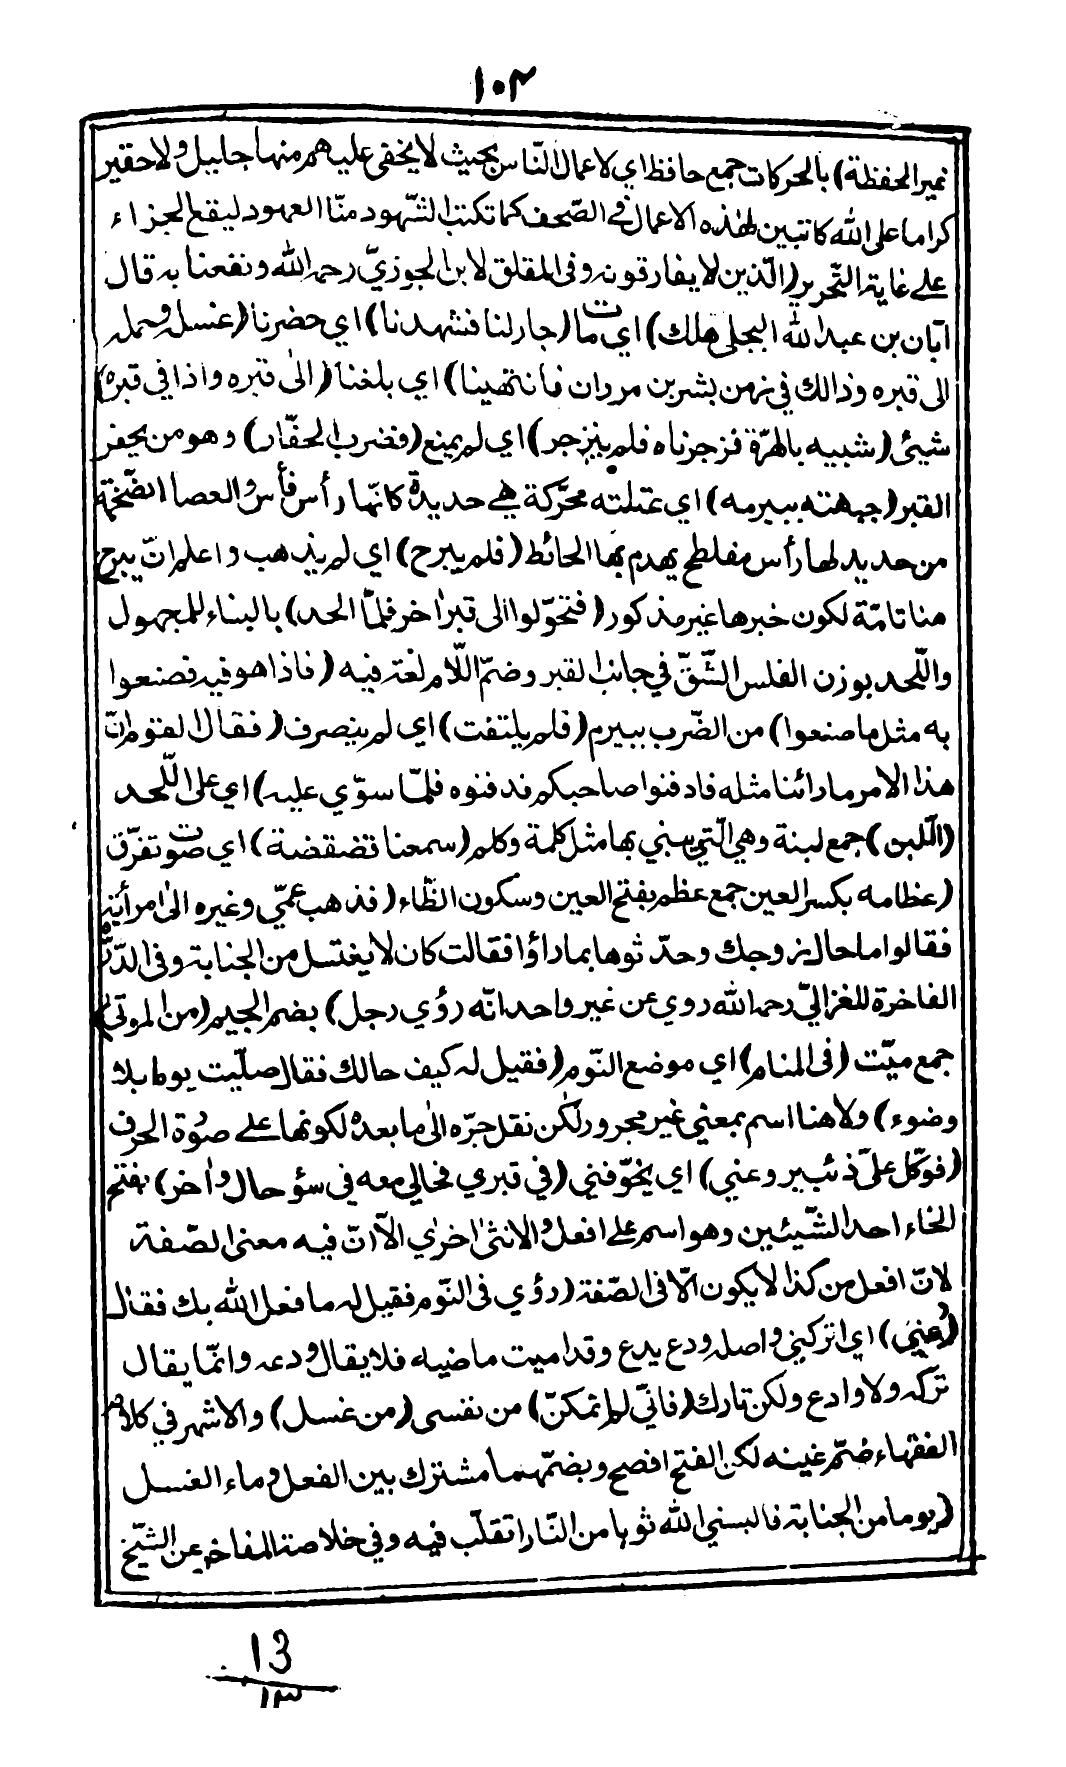 ١٠٣
نمير الحفظة) بالحركات جمع حافظ اي لاعمال النّاس بحيث لا يخفى عليهم منها جليل ولا حقير
كراما على الله كاتبين لهذه الاعمال في الصّحف كما تكتب الشّهود منّا العهود ليقع الجزاء
علي غاية التّحرير (الّذين لا يفارقونه وفى المقلق لابن الجوزيّ رحمه الله ونفعنا به قال
ابّان بن عبد الله البجلي هلك) اي مات (جار لنا فشهدنا) اي حضرنا (غسله وحمله
الى قبره وذالك في زمن بشر بن مردان فانتهينا) اي بلغنا (الى قبره واذا في قبره)
شيئ (شبيه بالهرّة فزجرناه فلم ينزجر) اي لم يمنع (فضرب الحفّار) وهو من يحفر
القبر (جبهته ببيرمه) اي عتلته محرّكة هي حديدة كانّها رأس فأس والعصا الضّخمة
من حديد لها رأس مفلطح يهدم بها الحائط (فلم يبرح) اي لم يذهب واعلم انّ يبرح
هنا تامّة لكون خبرها غير مذكور (فتحوّلوا الى قبر اخر فلمّا الحد) بالبناء للمجهول
واللّحد بوزن الفلس الشّقّ في جانب القبر وضمّ اللّام لغة فيه (فاذا هو فيه فصنعوا
به مثل ما صنعوا) من الضّرب ببيرم (فلم يلتفت) اي لم ينصرف (فقال القوم انّ
هذا الامر ما رائنا مثله فادفنوا صاحبكم فدفنوه فلمّا سوّي عليه) اي على اللّحد
(اللّبن) جمع لبنة وهي الّتي يبني بها مثل كلمة وكلم (سمعنا قضقضة) اي صوت تفرّق
(عظامه بكسر العين جمع عظم بفتح العين وسكون الظّاء (فذهب عمّي وغيره الى امرأته
فقالوا ما حال زوجك وحدّثوها بما رأوا فقالت كان لا يغتسل من الجنابة وفى الدّرّة
الفاخرة للغزاليّ رحمه الله روي عن غير واحد انّه رؤي رجل) بضم الجيم (من الموتى)
جمع ميّت (فى المنام) اي موضع النّوم (فقيل له كيف حالك فقال صلّيت يوما بلا
وضوء) ولا هنا اسم بمعني غير مجرور لكن نقل جرّه الى ما بعده لكونها علے صورة الحرف
(فوكّل علىّ ذئب يروعني) اي يخوّفني (في قبري فحالي معه في سؤ حال وأخر) بفتح
الخاء احد الشّيئين وهو اسم علي افعل والانثى اخرٰي الّا انّ فيه معنى الصّفة
لانّ افعل من كذا لا يكون الّا فى الصّفة (رؤي فى النّوم فقيل له ما فعل الله بك فقال
(دعني) اي اتركني واصله ودع يدع وقد اميت ماضيه فلا يقال ودعه وانّما يقال
تركه ولا وادع ولكن تارك (فانّي لم اتمكنّ) من نفسى (من غسل) والاشهر في كلام
الفقهاء ضمّ غينه لكن الفتح افصح وبضمّهما مشترك بين الفعل وماء الغسل
(يوما من الجنابة فالبسني الله ثوبا من النّار اتقلّب فيه وفي خلاصة المفاخر عن الشّيخ
13
١٣